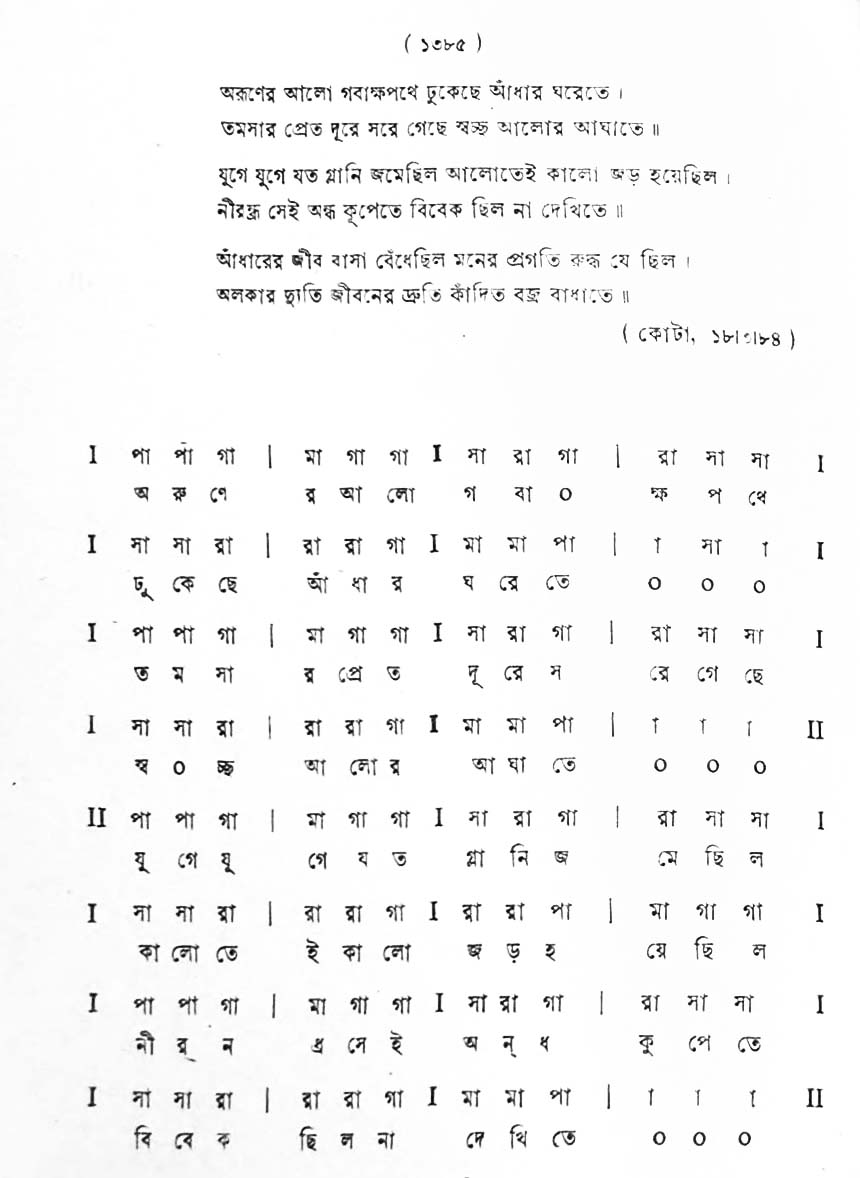 ( ১৩৮৫ )
অরূণের আলো গবাক্ষপথে ঢুকেছে আঁধার ঘরেতে ।
তমসার প্রেত দূরে সরে গেছে স্বচ্ছ আলোর আঘাতে ॥
যুগে যুগে যত গ্লানি জমেছিল আলোতেই কালো জড় হয়েছিল ।
নীরন্ধ্র সেই অন্ধ কূপেতে বিবেক ছিল না দেখিতে ॥
আঁধারের জীব বাসা বেঁধেছিল মনের প্রগতি রুদ্ধ যে ছিল ।
অলকার দ্যুতি জীবনের দ্রুতি কাঁদিত বজ্র বাধাতে ॥
( কোটা, ১৮।৩।৮৪ )
I পা পা গা | মা গা গা I সা রা গা | রা সা সা I
অ রু ণে র আ লো গ বা ০ ক্ষ প থে
I সা সা রা | রা রা গা I মা মা পা | া সা া I
ঢু কে ছে আঁ ধা র ঘ রে তে ০ ০ ০
I পা পা গা | মা গা গা I সা রা গা | রা সা সা I
ত ম সা র প্রে ত দূ রে স রে গে ছে
I সা সা রা | রা রা গা I মা মা পা | া া া II
স্ব ০ চ্ছ আ লো র আ ঘা তে ০ ০ ০
II পা পা গা | মা গা গা I সা রা গা | রা সা সা I
যু গে যু গে য ত গ্লা নি জ মে ছি ল
I সা সা রা | রা রা গা I রা রা পা | মা গা গা I
কা লো তে ই কা লো জ ড় হ য়ে ছি ল
I পা পা গা | মা গা গা I সা রা গা | রা সা সা I
নী র্ ন ধ্র সে ই অ ন্ ধ কু পে তে
I সা সা রা | রা রা গা I মা মা পা | া া া II
বি বে ক ছি ল না দে খি তে ০ ০ ০